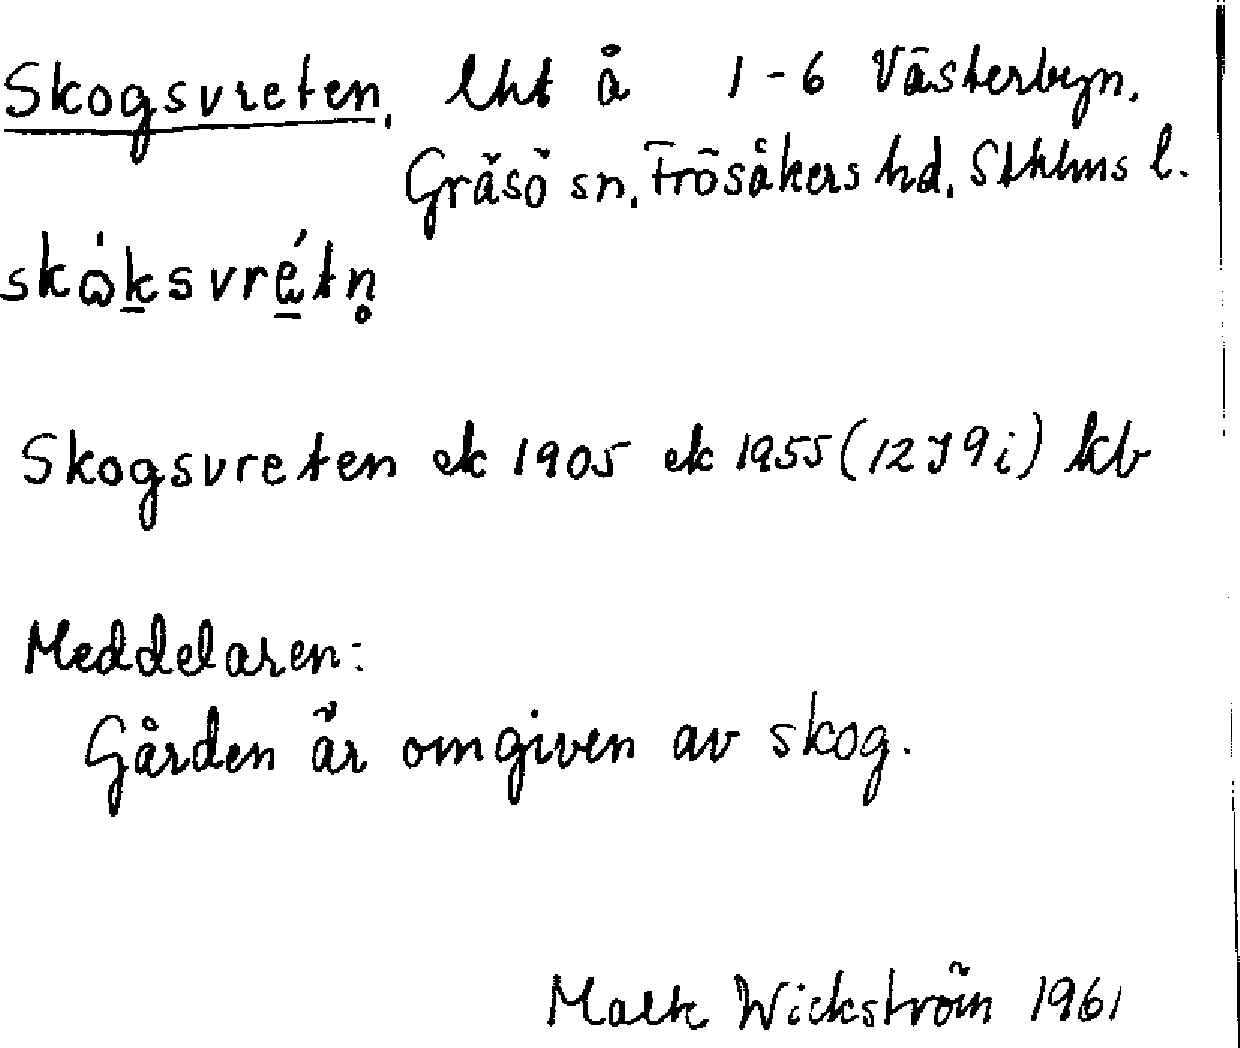 Skogsvreten, lht å 1-6 Västerbyn,
Gräsö sn, Frösåkers hd, Sthlms l.
skὼksvrétn̥
Skogsvreten ek 1905 ek 1955 (12J9i) kb
Meddelaren:
Gården är omgiven av skog.
Wickström 1961